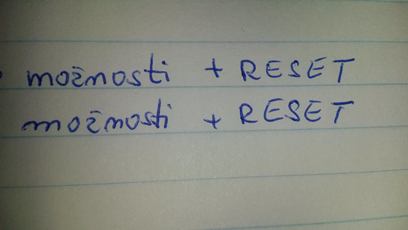 možnosti + RESET
možnosti + RESET